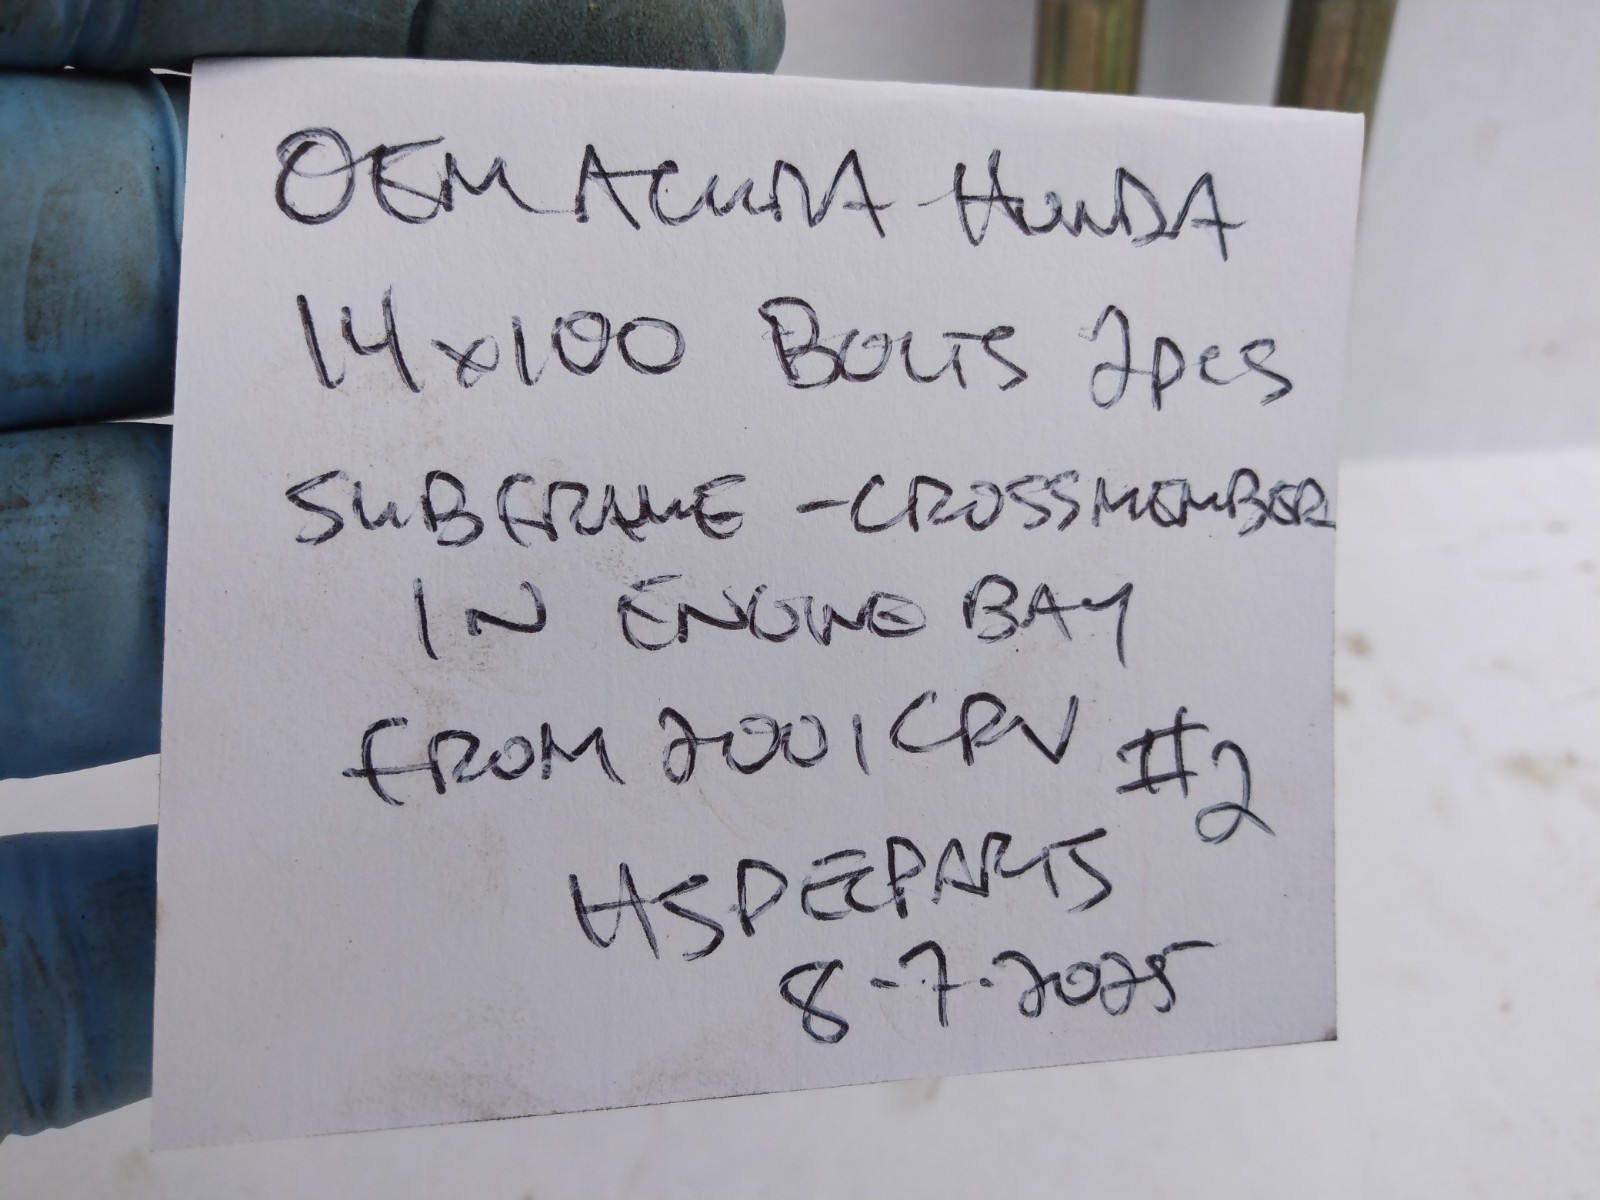 OEM ACURA HONDA
14x100 BOLTS 2pcs
SUBFRAME - CROSSMEMBER
IN ENGINE BAY
FROM 2001 CRV #2
HSPECPARTS
8-7-2025